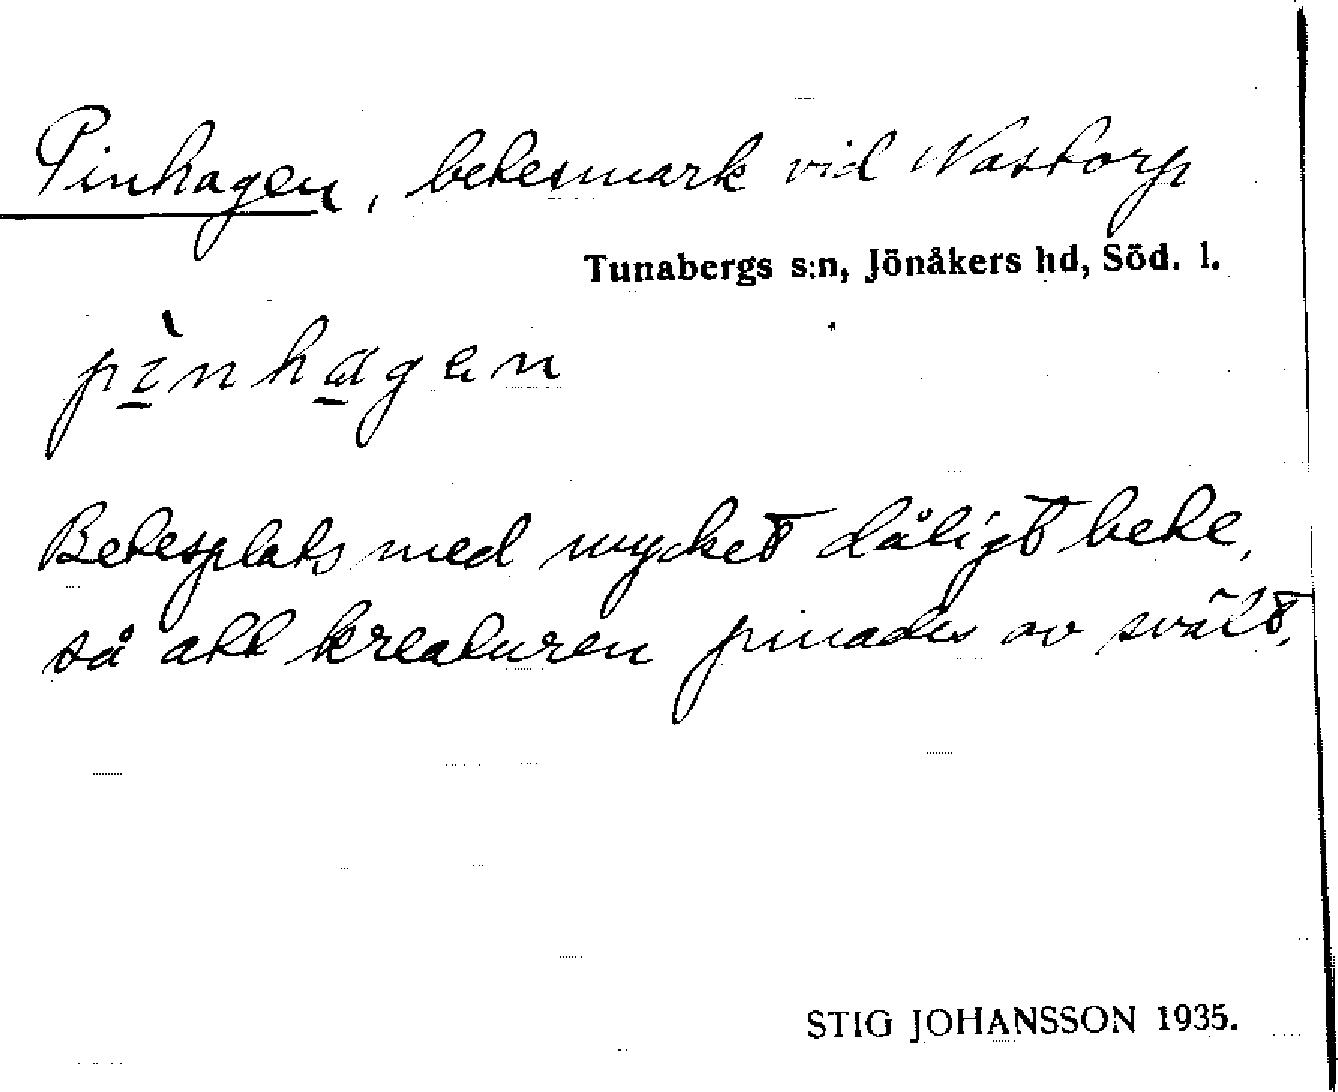 Pinhagen, betesmark vid Nastorp
Tunabergs s:n, Jönåkers hd, Söd. l.
pìnhagen
Betesplats med mycket dåligt bete,
så att kreaturen pinades av svält.
STIG JOHANSSON 1935.